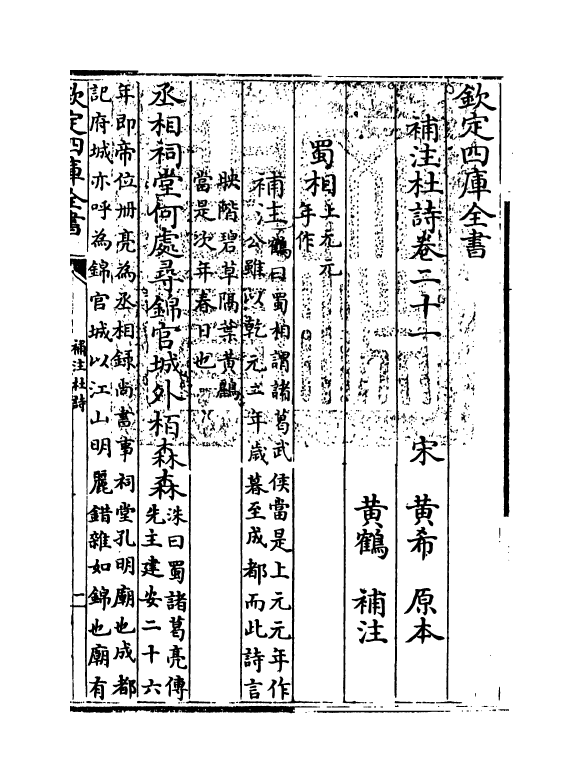 欽定四庫全書
補注杜詩卷二十一
宋 黃希 原本
黃鶴 補注
蜀相
上元元
年作
補注鶴曰蜀相謂諸葛武侯當是上元元年作
公雖以乾元二年歲暮至成都而此詩言
映階碧草隔葉黃鸝
當是次年春日也
丞相祠堂何處尋錦官城外柏森森
洙曰蜀諸葛亮傳
先主建安二十六
年即帝位册亮為丞相錄尚書事祠堂孔明廟也成都
記府城亦呼為錦官城以江山明麗錯雜如錦也廟有
欽定四庫全書
補注杜詩